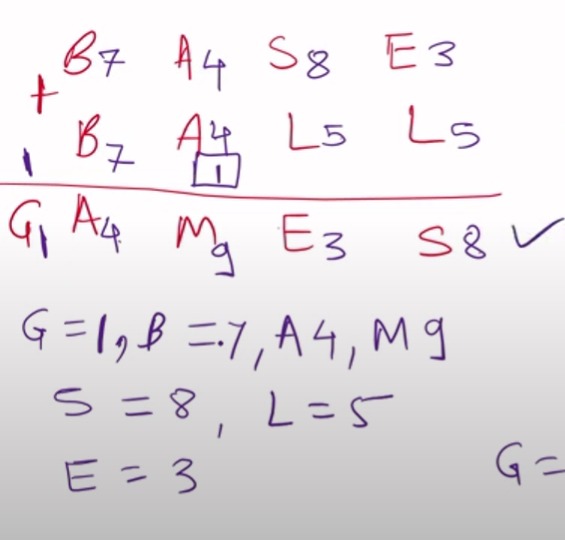 B7 A4 S8 E3
+
1 B7 A4 L5 L5
1
G1 A4 M9 E3 S8 ✓
G=1, B=.7, A4, M9
S = 8, L=5
E = 3
G=